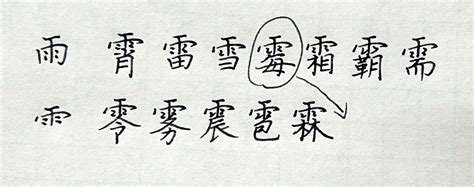 雨 霄 雷 雪 霉 霜 霸 需
雨 零 雾 震 雹 霖